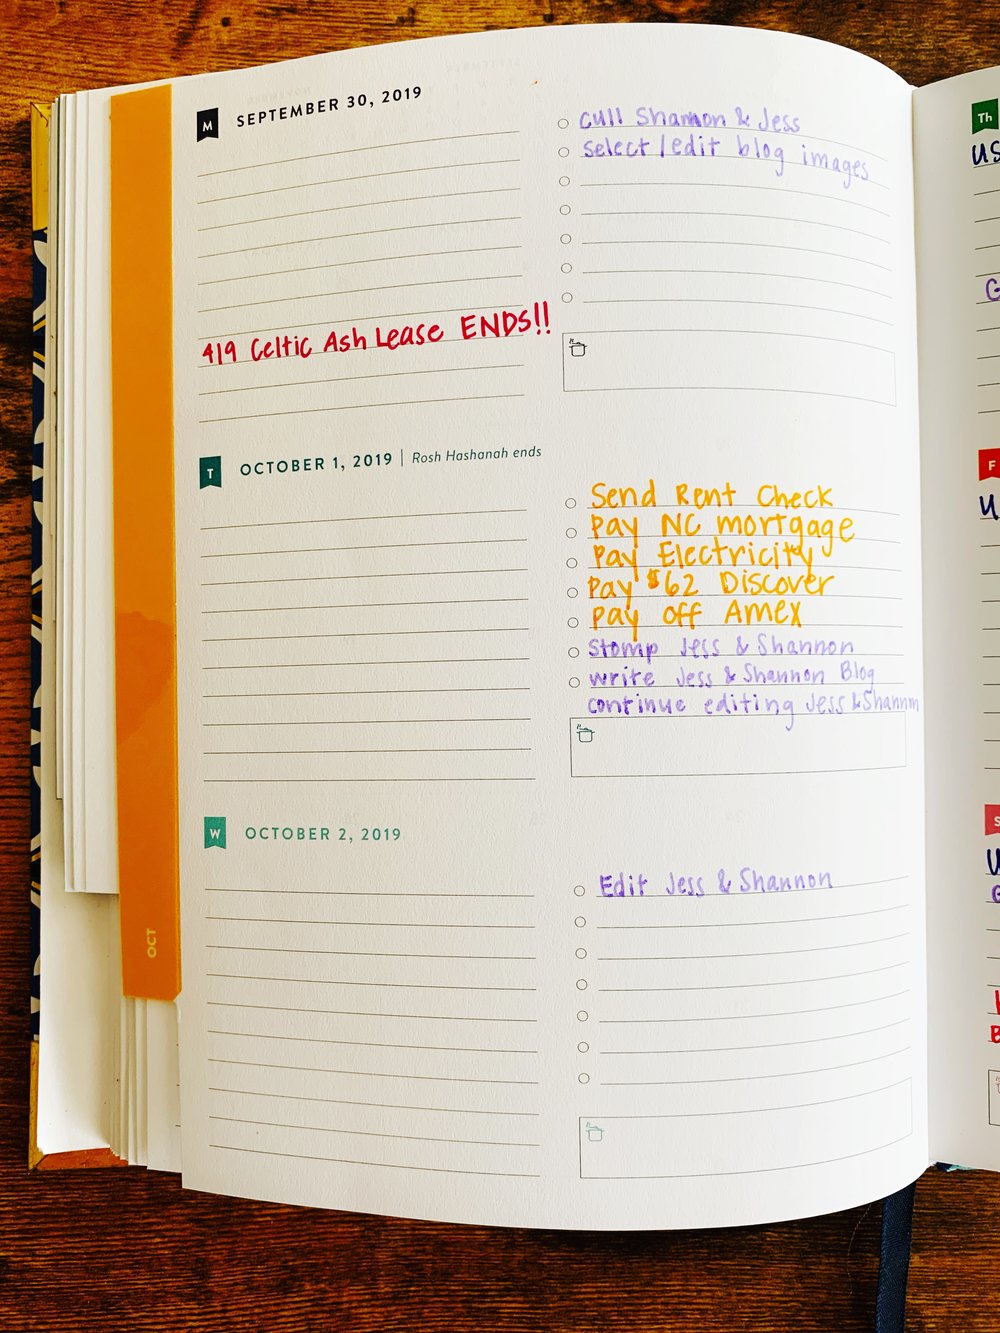 M SEPTEMBER 30, 2019
cull Shannon & Jess
select/edit blog images
419 Celtic Ash Lease ENDS!!
T OCTOBER 1, 2019 | Rosh Hashanah ends
Send Rent Check
Pay NC mortgage
Pay Electricity
Pay $62 Discover
Pay off Amex
Stomp Jess & Shannon
write Jess & Shannon Blog
continue editing Jess & Shannon
W OCTOBER 2, 2019
Edit Jess & Shannon
OCT
Th
US
G
F
U
S